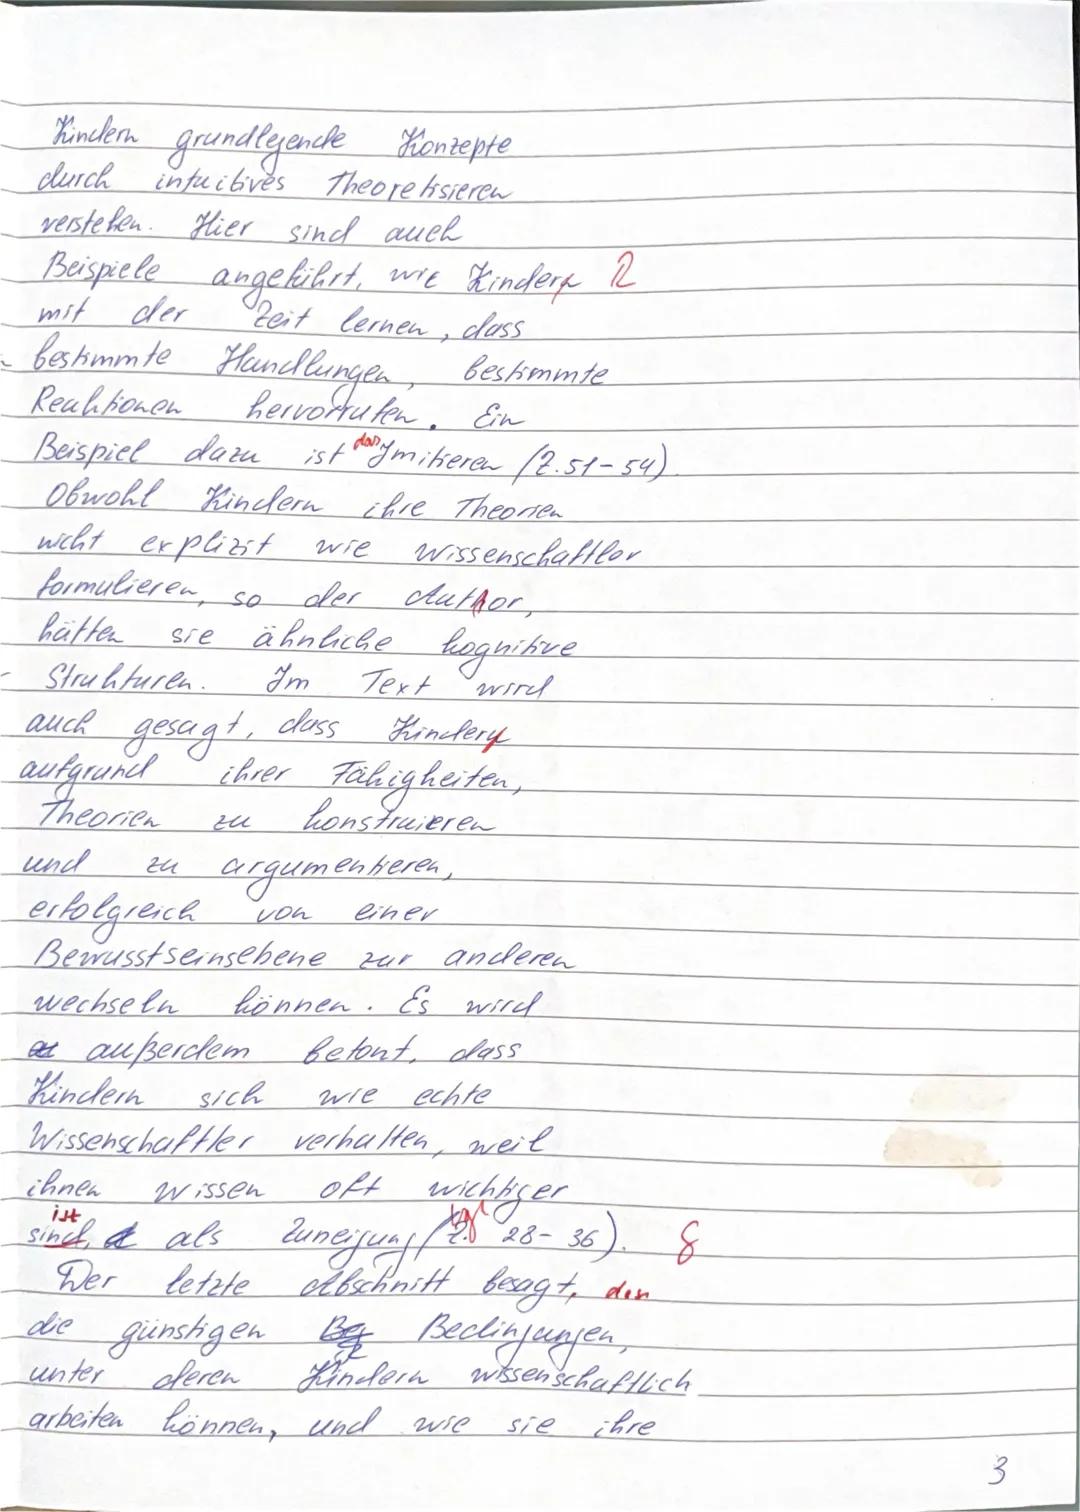 Kindern grundlegende Konzepte
durch intuitives Theoretisieren
verstehen. Hier sind auch
Beispiele angeführt, wie Kindern R
mit der Zeit lernen, dass
bestimmte Handlungen, bestimmte
Reaktionen hervorrufen. Ein
Beispiel dazu ist das Imitieren (Z.51-54).
Obwohl Kindern ihre Theorien
nicht explizit wie Wissenschaftler
formulieren, so der Author,
hätten sie ähnliche kognitive
Strukturen. Im Text wird
auch gesagt, dass Kindern
aufgrund ihrer Fähigkeiten,
Theorien zu konstruieren
und zu argumentieren,
erfolgreich von einer
Bewusstseinsebene zur anderen
wechseln können. Es wird
außerdem betont, dass
Kindern sich wie echte
Wissenschaftler verhalten, weil
ihnen Wissen oft wichtiger
ist
sind, als Zuneigung (Z. 28-36).
Der letzte Abschnitt besagt, den
die günstigen Bedingungen,
unter deren Kindern wissenschaftlich
arbeiten können, und wie sie ihre
3